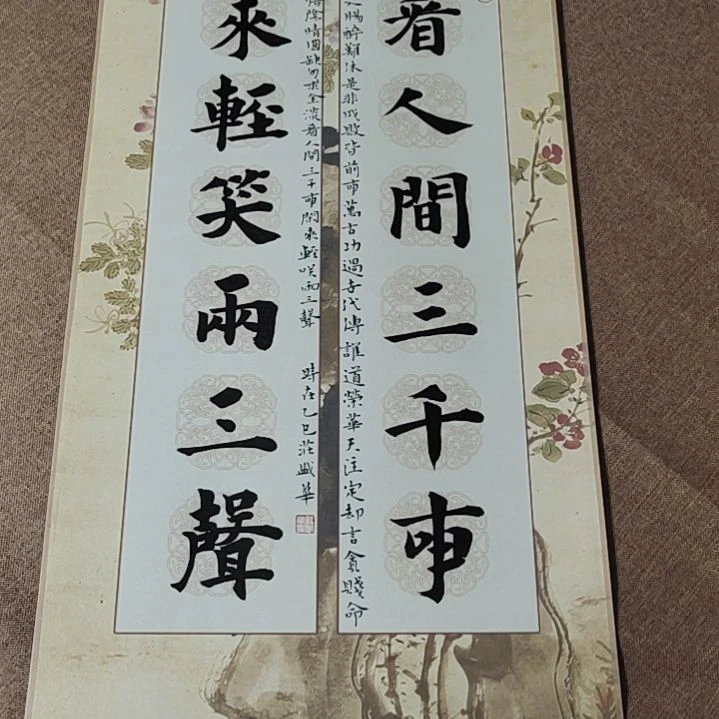 看人間三千事
腸醉難休是非成敗皆前事萬古功過代傳誰道榮華天注定却言貧賤命
陰晴圓缺勿求全淡看人間三千事閑來輕笑兩三聲 時在乙巳莊盛華
來輕笑兩三聲